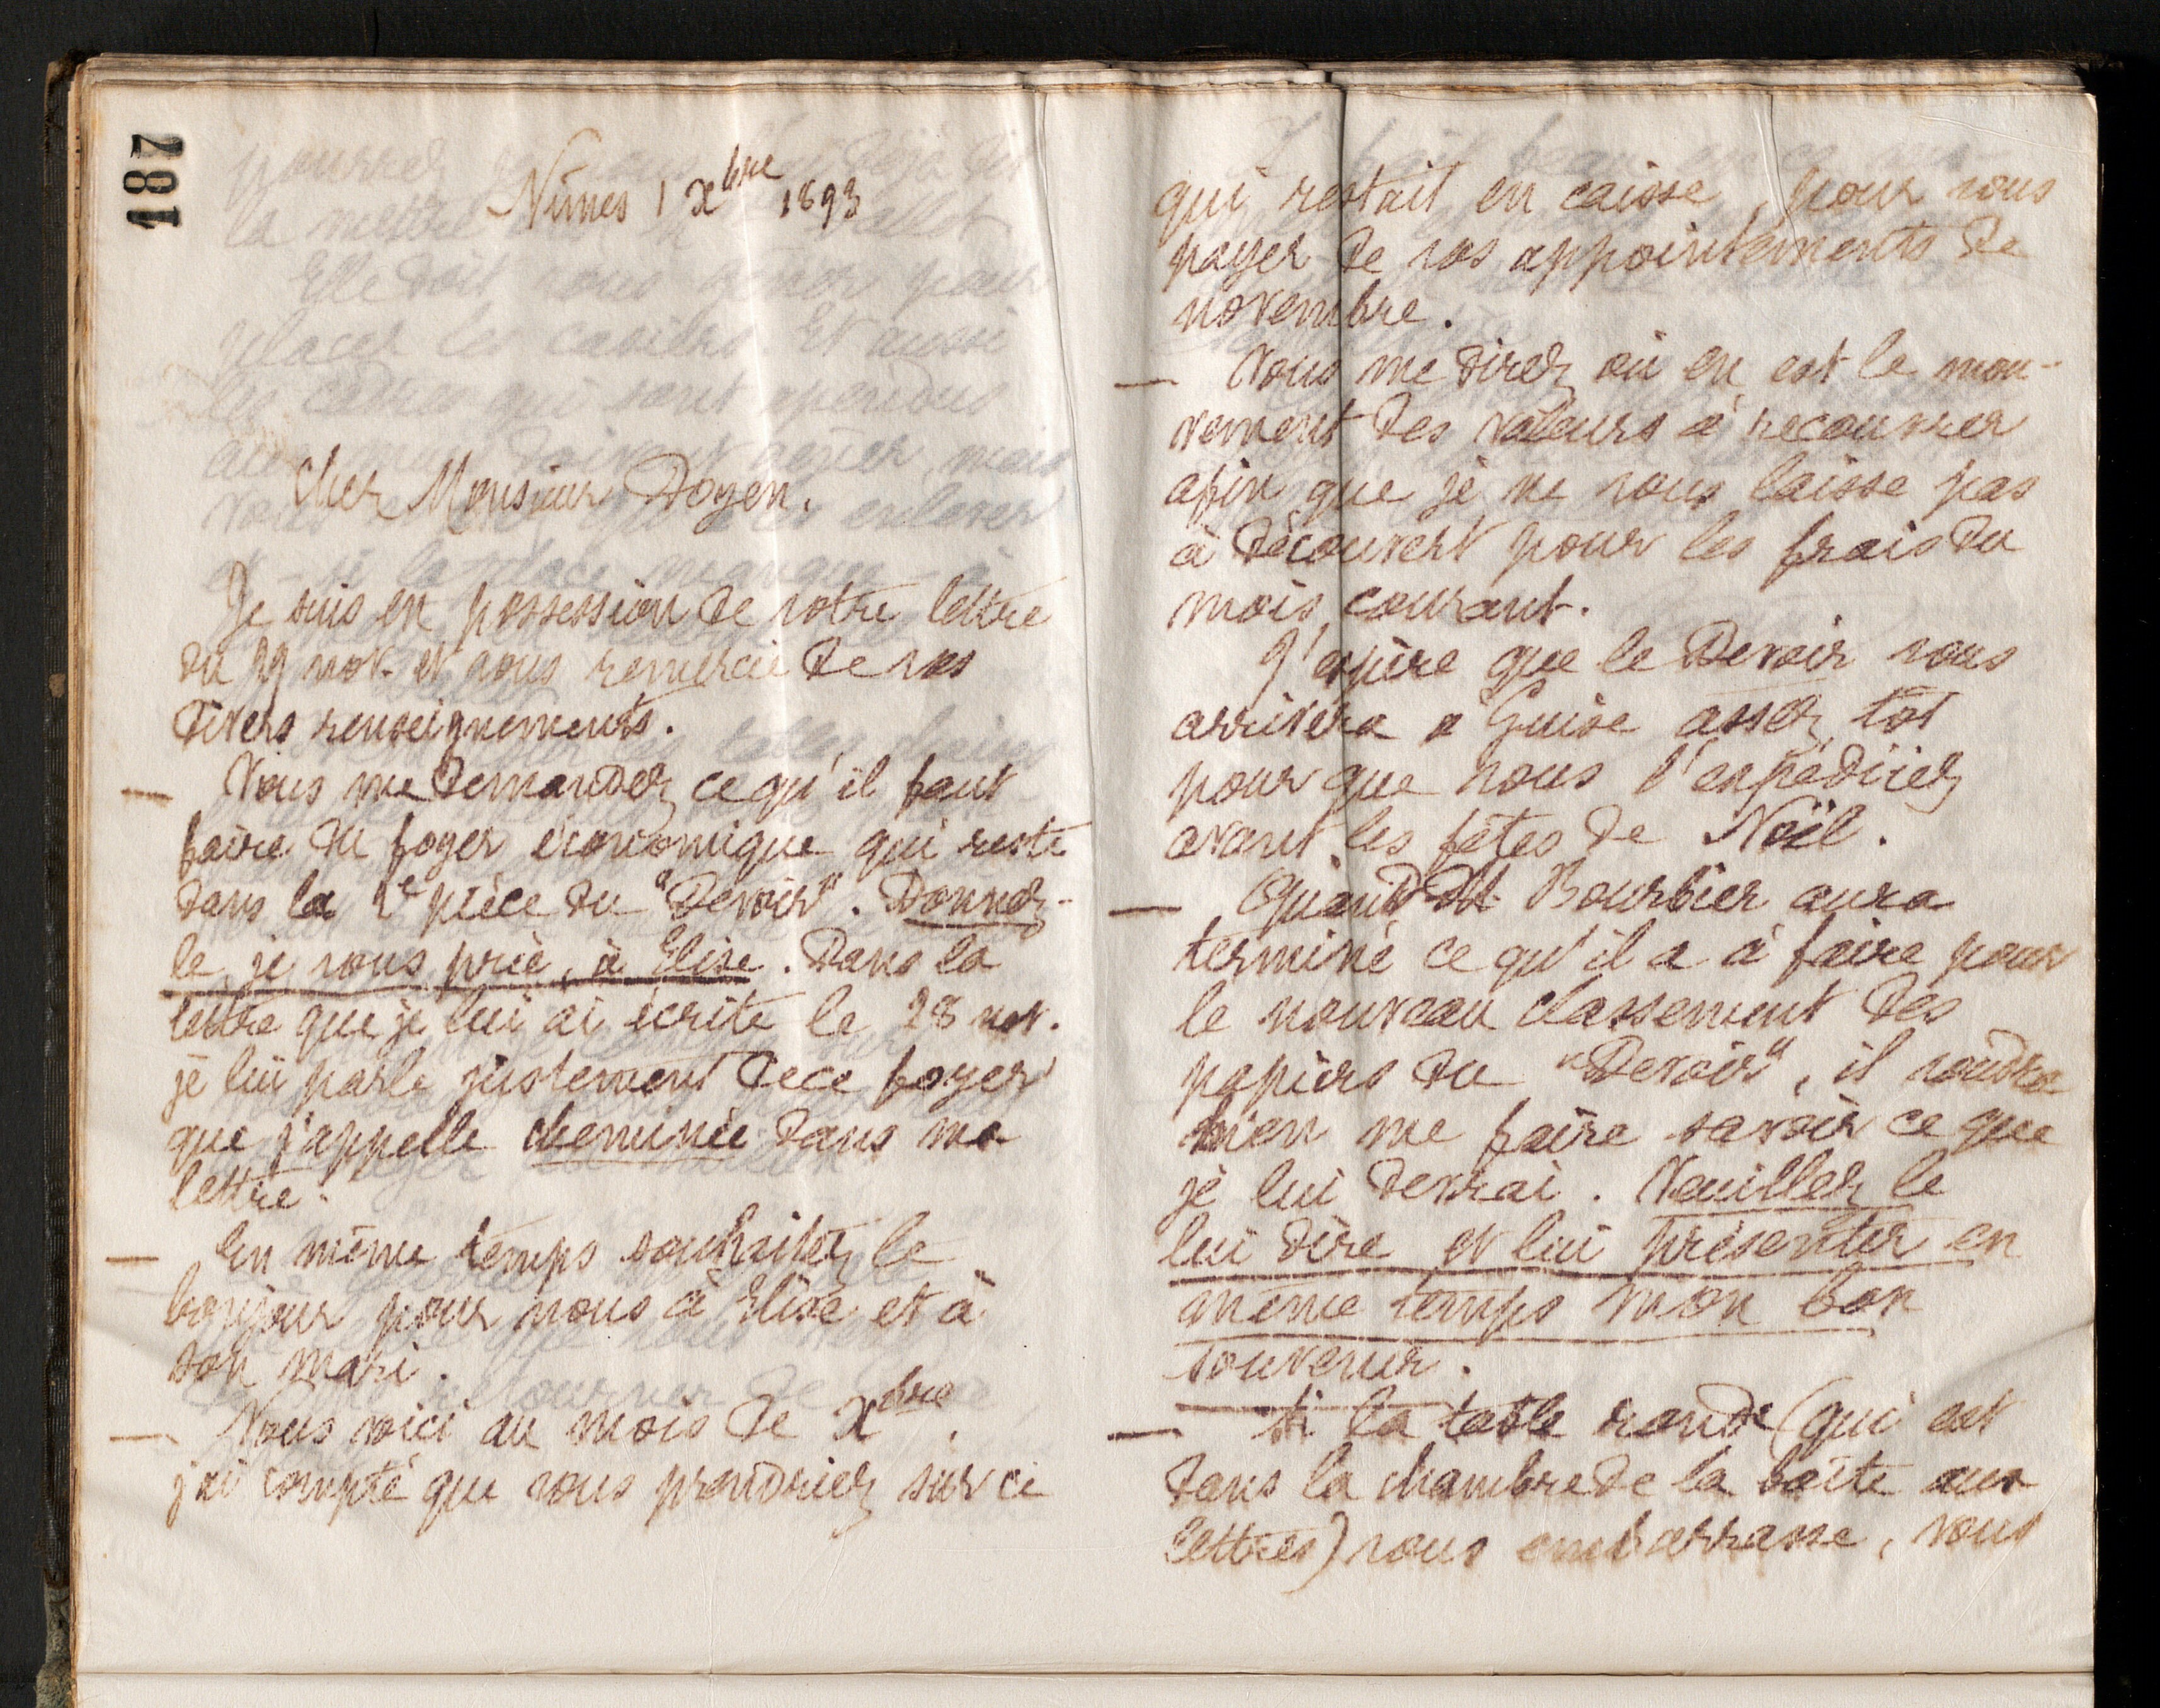 187
Nîmes 1 Xbre 1893
Cher Monsieur Doyen.
Je suis en possession de votre lettre
du 29 nov. et vous remercie de vos
divers renseignements.
— Vous me demandez ce qu'il faut
faire du foyer économique qui reste
dans la 2e pièce du "Devoir". Donnez-
le, je vous prie, à Elise. Dans la
lettre que je lui ai écrite le 28 nov.
je lui parle justement de ce foyer
que j'appelle cheminée dans ma
lettre.
— En même temps souhaitez le
bonjour pour nous à Elise et à
son mari.
— Nous voici au mois de Xbre.
j'ai compté que vous prendriez sur ce
qui restait en caisse, pour vous
payer de vos appointements de
novembre.
— Vous me direz où en est le mou-
vement des valeurs à recouvrer
afin que je ne vous laisse pas
à découvert pour les frais du
mois courant.
J'espère que le Devoir vous
arrivera à Guise assez tôt
pour que vous l'expédiiez
avant les fêtes de Noël.
— Quand M Bourbier aura
terminé ce qu'il a à faire pour
le nouveau classement des
papiers du "Devoir", il voudra
bien me faire savoir ce que
je lui devrai. Veuillez le
lui dire et lui présenter en
même temps mon bon
souvenir.
— Si la table ronde (qui est
dans la chambre de la boîte aux
lettres) vous embarrasse, vous